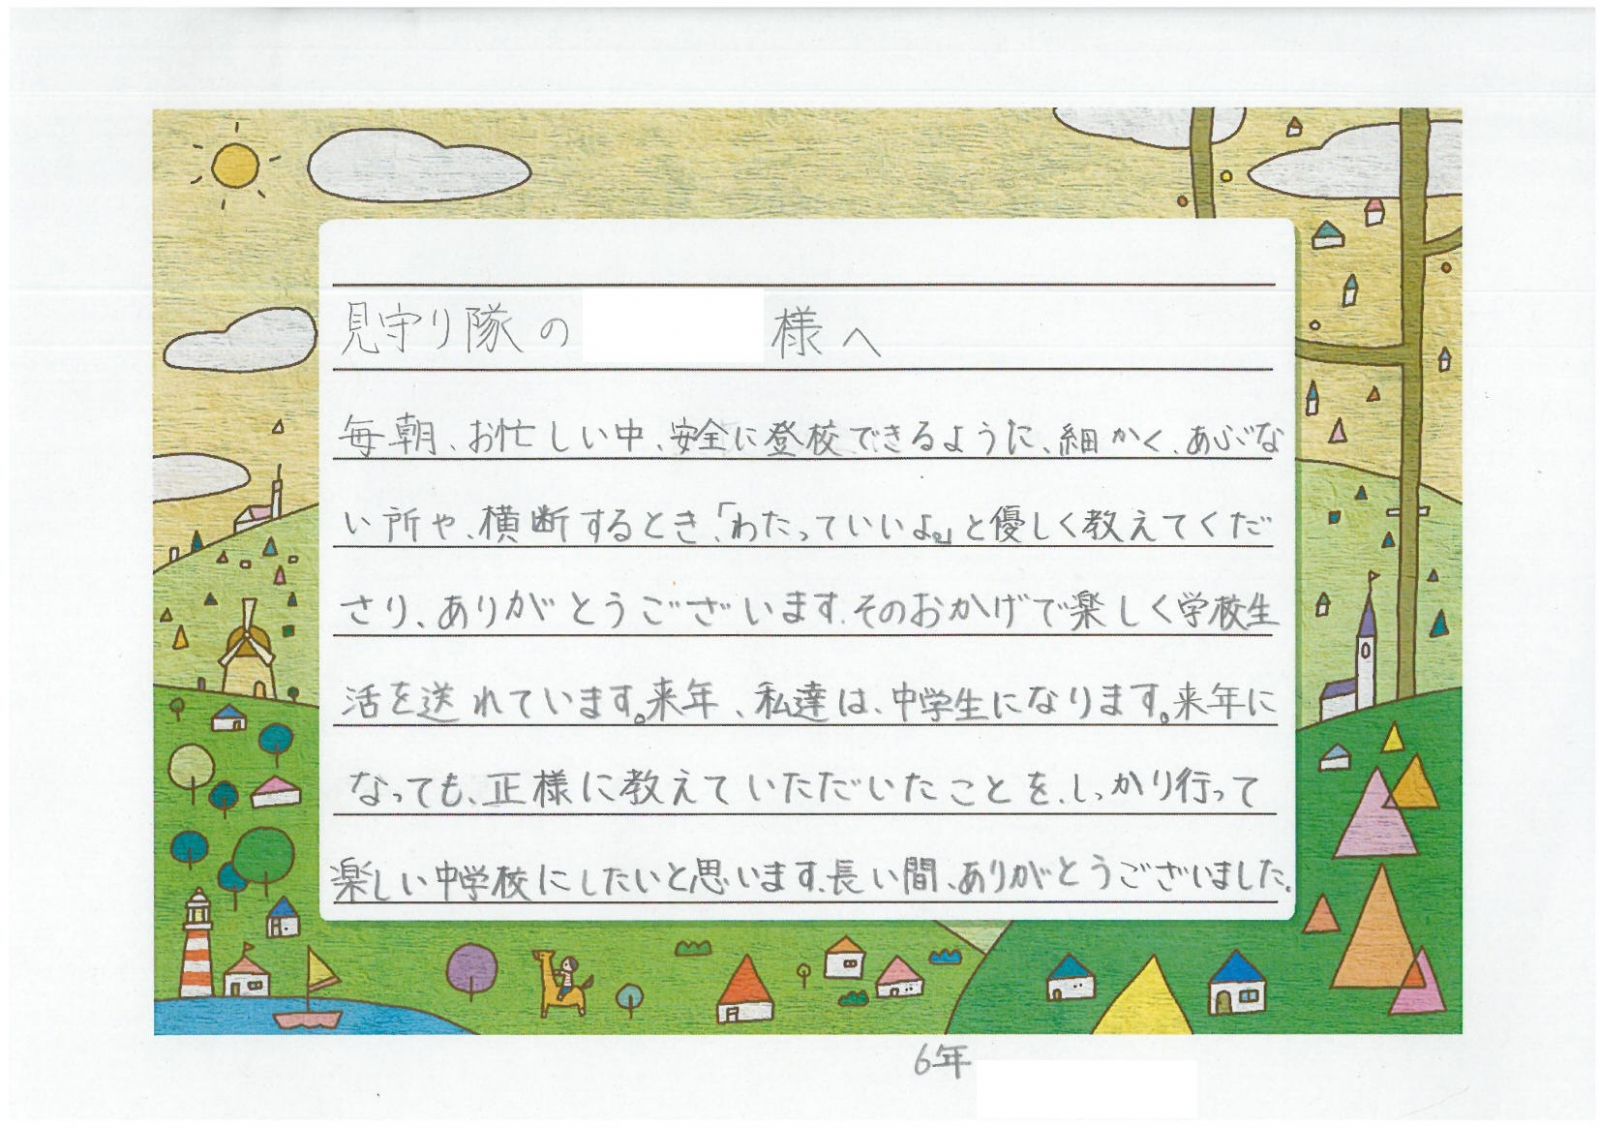 見守り隊の 様へ
毎朝、お忙しい中、安全に登校できるように、細かく、あぶな
い所や、横断するとき、「わたっていいよ。」と優しく教えてくだ
さり、ありがとうございます。そのおかげで楽しく学校生
活を送れています。来年、私達は、中学生になります。来年に
なっても、正様に教えていただいたことを、しっかり行って
楽しい中学校にしたいと思います。長い間、ありがとうございました。
6年